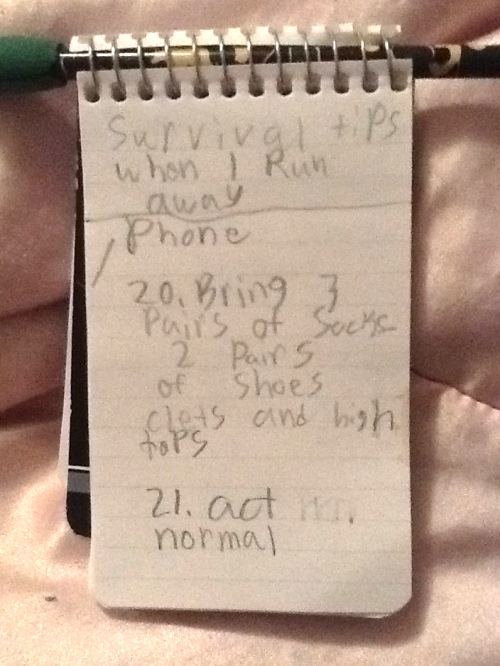 Survival tips
when I Run
away
Phone
20. Bring 3
Pairs of Socks
2 Pairs
of shoes
clets and high
toPs
21. act
normal